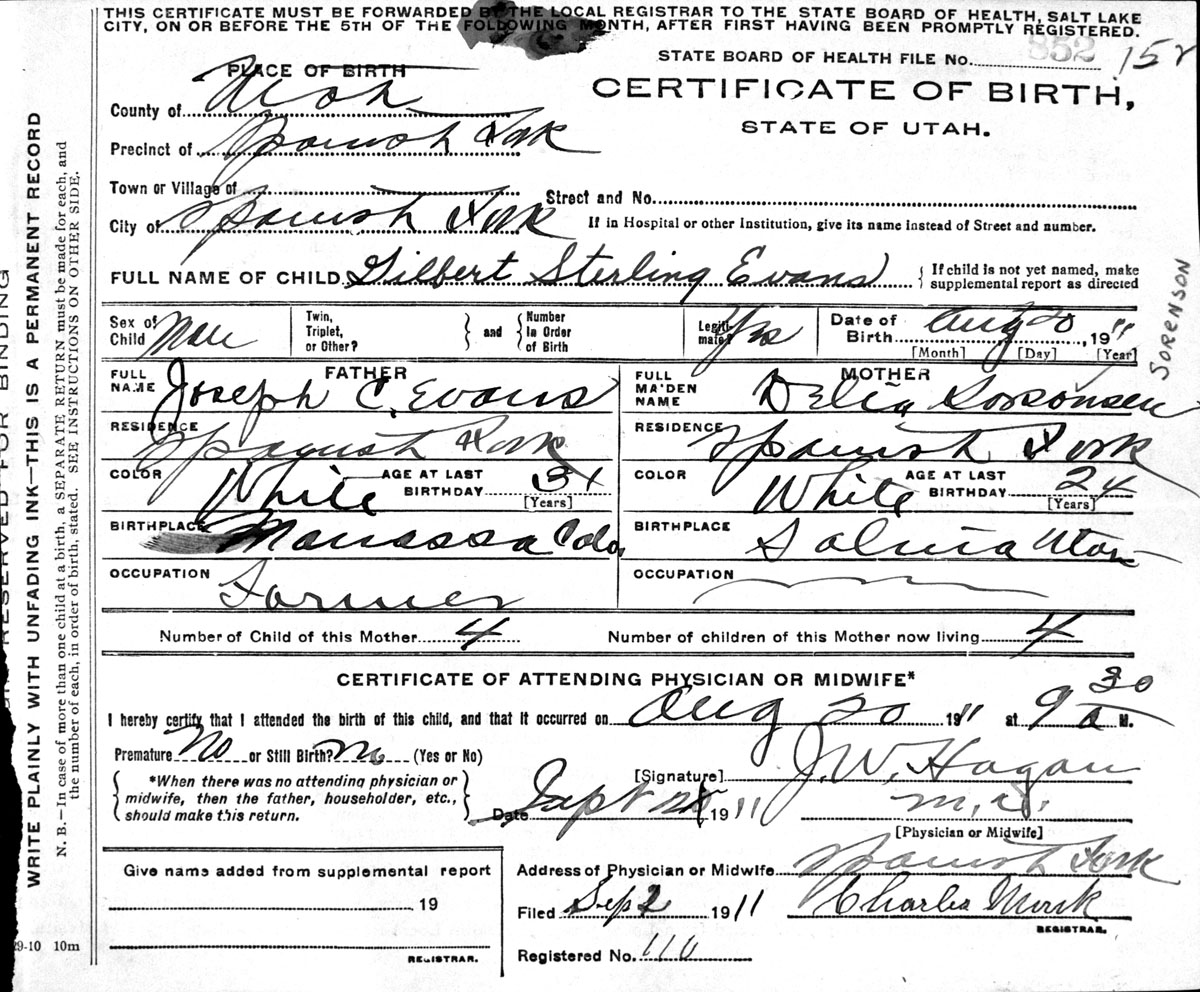 THIS CERTIFICATE MUST BE FORWARDED BY THE LOCAL REGISTRAR TO THE STATE BOARD OF HEALTH, SALT LAKE
CITY, ON OR BEFORE THE 5TH OF THE FOLLOWING MONTH, AFTER FIRST HAVING BEEN PROMPTLY REGISTERED.
STATE BOARD OF HEALTH FILE No. 852 152
PLACE OF BIRTH
CERTIFICATE OF BIRTH,
STATE OF UTAH.
County of Utah
Precinct of Spanish Fork
Town or Village of
Street and No.
City of Spanish Fork
If in Hospital or other Institution, give its name instead of Street and number.
FULL NAME OF CHILD Gilbert Sterling Evans
{ If child is not yet named, make
supplemental report as directed
Sex of Child Male
Twin, Triplet, or Other?
} and {
Number In Order of Birth
Legiti-mate? Yes
Date of Birth Aug 20, 1911
[Month] [Day] [Year]
SORENSON
FATHER
FULL NAME Joseph C. Evans
MOTHER
FULL MAIDEN NAME Delia Sorsonsen
RESIDENCE Spanish Fork
RESIDENCE Spanish Fork
COLOR White AGE AT LAST BIRTHDAY 34 [Years]
COLOR White AGE AT LAST BIRTHDAY 24 [Years]
BIRTHPLACE Manassa Colo
BIRTHPLACE Salina Utah
OCCUPATION Farmer
OCCUPATION
Number of Child of this Mother 4
Number of children of this Mother now living 4
CERTIFICATE OF ATTENDING PHYSICIAN OR MIDWIFE*
I hereby certify that I attended the birth of this child, and that it occurred on Aug 20 1911 at 9 30 a M.
Premature No or Still Birth? no (Yes or No)
{ *When there was no attending physician or
midwife, then the father, householder, etc.,
should make this return. }
[Signature] J. W. Hagan
Date Sept 1911
M.D.
[Physician or Midwife]
Give name added from supplemental report
19
REGISTRAR.
Address of Physician or Midwife Spanish Fork
Filed Sep 2 1911
Charles Monk
REGISTRAR.
Registered No. 110
RESERVED FOR BINDING
WRITE PLAINLY WITH UNFADING INK—THIS IS A PERMANENT RECORD
N. B.—In case of more than one child at a birth, a SEPARATE RETURN must be made for each, and
the number of each, in order of birth, stated. SEE INSTRUCTIONS ON OTHER SIDE.
29-10 10m